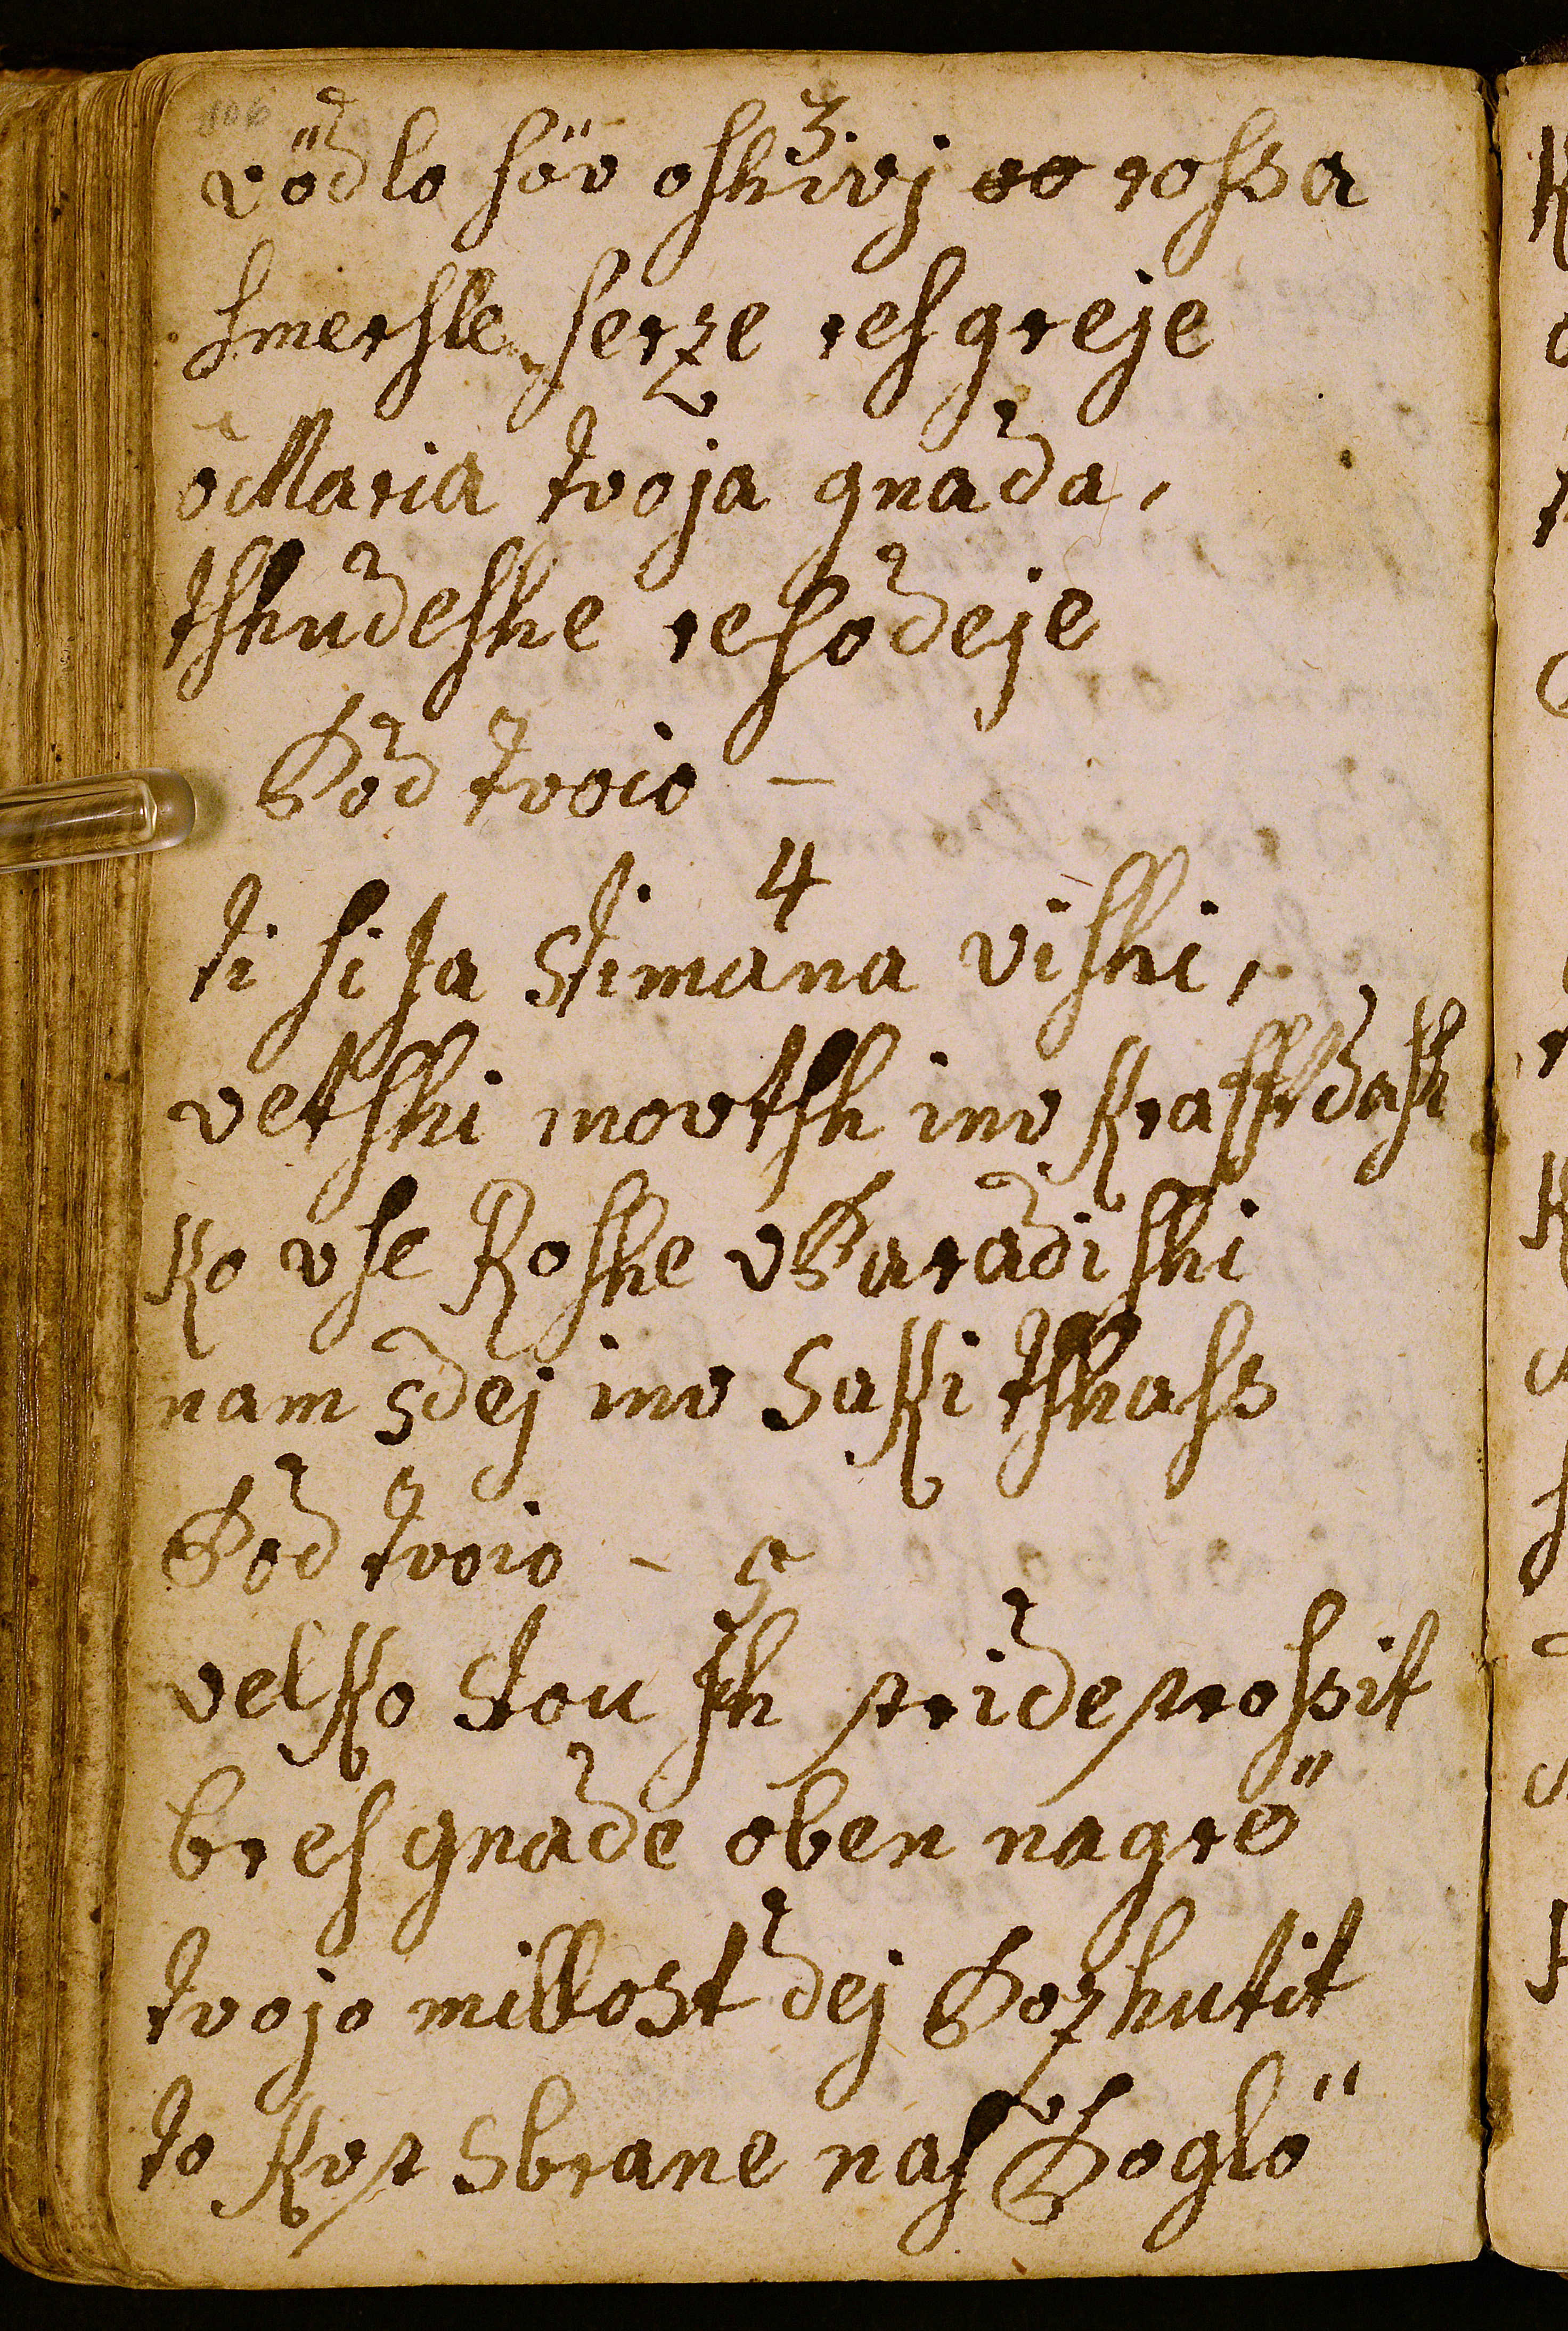 106
3.
vödlo ſöv oſhivj oo roſsa
ſmerſhle ſerze reſgreje
ô Maria tvoja gnada,
tſhudeſhe reſodeje
Pod tvoio —
4
ti ſi ta Stimana viſhi,
vetſhi movtſh inv Krafft dosh
Ko vſe Roſhe v Paradiſhi
nam sdej inv SaKi tſhaſs
Pod tvoio —
5
velKo Stou ſh pride proſsit
breſ gnade oben nagrö
tvojo milloSt dej Pozhutit
to Kop Sbrane naſ Poglö